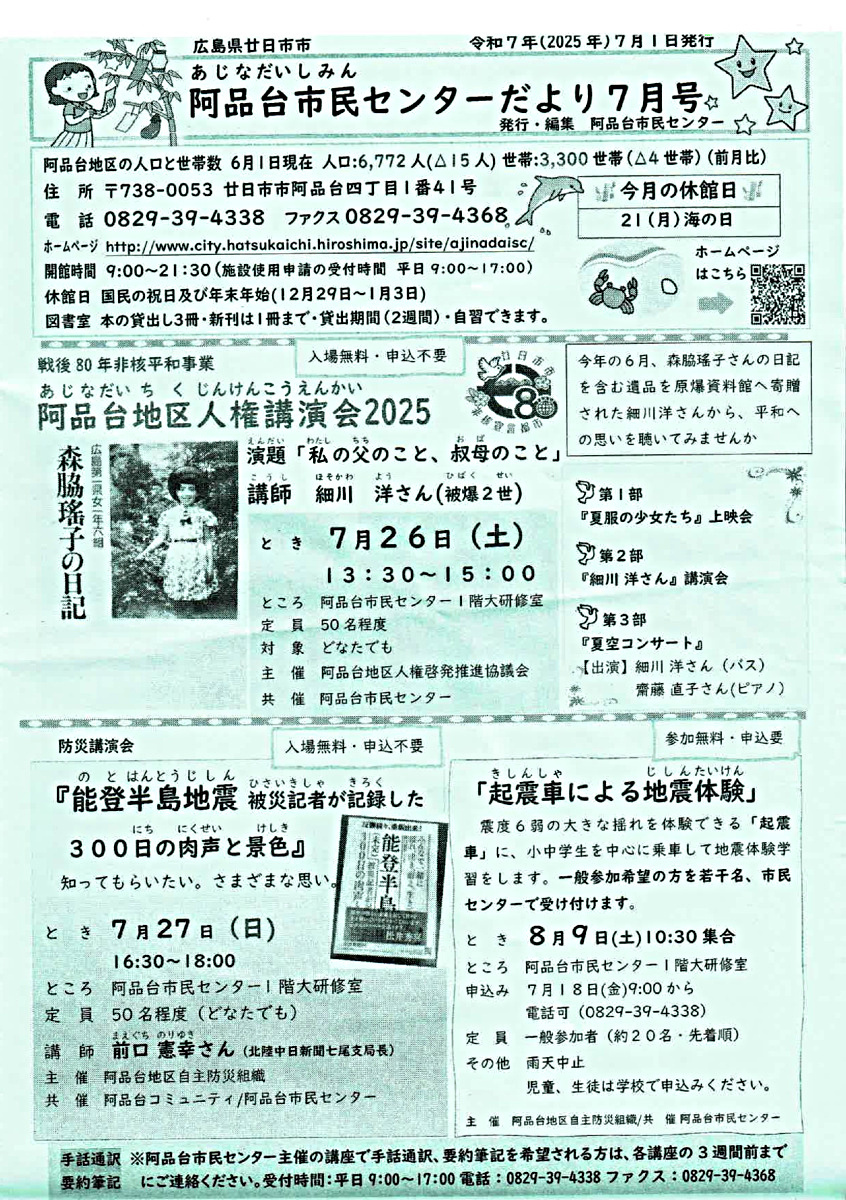 広島県廿日市市
令和7年(2025年)7月1日発行
あじなだいしみん
阿品台市民センターだより7月号
発行・編集 阿品台市民センター
阿品台地区の人口と世帯数 6月1日現在 人口:6,772人(△15人) 世帯:3,300世帯(△4世帯) (前月比)
住 所 〒738-0053 廿日市市阿品台四丁目1番41号
電 話 0829-39-4338 ファクス 0829-39-4368
ホームページ http://www.city.hatsukaichi.hiroshima.jp/site/ajinadaisc/
開館時間 9:00~21:30(施設使用申請の受付時間 平日9:00~17:00)
休館日 国民の祝日及び年末年始(12月29日~1月3日)
図書室 本の貸出し3冊・新刊は1冊まで・貸出期間(2週間)・自習できます。
今月の休館日
21(月)海の日
ホームページ
はこちら
戦後80年非核平和事業
入場無料・申込不要
あじなだい ち く じんけんこうえんかい
阿品台地区人権講演会2025
今年の6月、森脇瑤子さんの日記
を含む遺品を原爆資料館へ寄贈
された細川洋さんから、平和へ
の思いを聴いてみませんか
広島第一県女一年六組
森脇瑤子の日記
えんだい わたし ちち おば
演題「私の父のこと、叔母のこと」
こうし ほそかわ よう ひばく せい
講師 細川 洋さん(被爆2世)
と き 7月26日(土)
13:30~15:00
ところ 阿品台市民センター1階大研修室
定 員 50名程度
対 象 どなたでも
主 催 阿品台地区人権啓発推進協議会
共 催 阿品台市民センター
第1部
『夏服の少女たち』上映会
第2部
『細川 洋さん』講演会
第3部
『夏空コンサート』
【出演】細川 洋さん(バス)
齋藤 直子さん(ピアノ)
防災講演会
入場無料・申込不要
の と はんとうじしん ひさいきしゃ きろく
『能登半島地震 被災記者が記録した
にち にくせい けしき
300日の肉声と景色』
知ってもらいたい。さまざまな思い。
能登半島
と き 7月27日(日)
16:30~18:00
ところ 阿品台市民センター1階大研修室
定 員 50名程度(どなたでも)
まえぐち のりゆき
講 師 前口 憲幸さん(北陸中日新聞七尾支局長)
主 催 阿品台地区自主防災組織
共 催 阿品台コミュニティ/阿品台市民センター
参加無料・申込要
きしんしゃ じしんたいけん
「起震車による地震体験」
震度6弱の大きな揺れを体験できる「起震
車」に、小中学生を中心に乗車して地震体験学
習をします。一般参加希望の方を若干名、市民
センターで受け付けます。
と き 8月9日(土)10:30集合
ところ 阿品台市民センター1階大研修室
申込み 7月18日(金)9:00から
電話可(0829-39-4338)
定 員 一般参加者(約20名・先着順)
その他 雨天中止
児童、生徒は学校で申込みください。
主 催 阿品台地区自主防災組織/共 催 阿品台市民センター
手話通訳 ※阿品台市民センター主催の講座で手話通訳、要約筆記を希望される方は、各講座の3週間前まで
要約筆記 にご連絡ください。受付時間:平日9:00~17:00 電話:0829-39-4338 ファクス:0829-39-4368